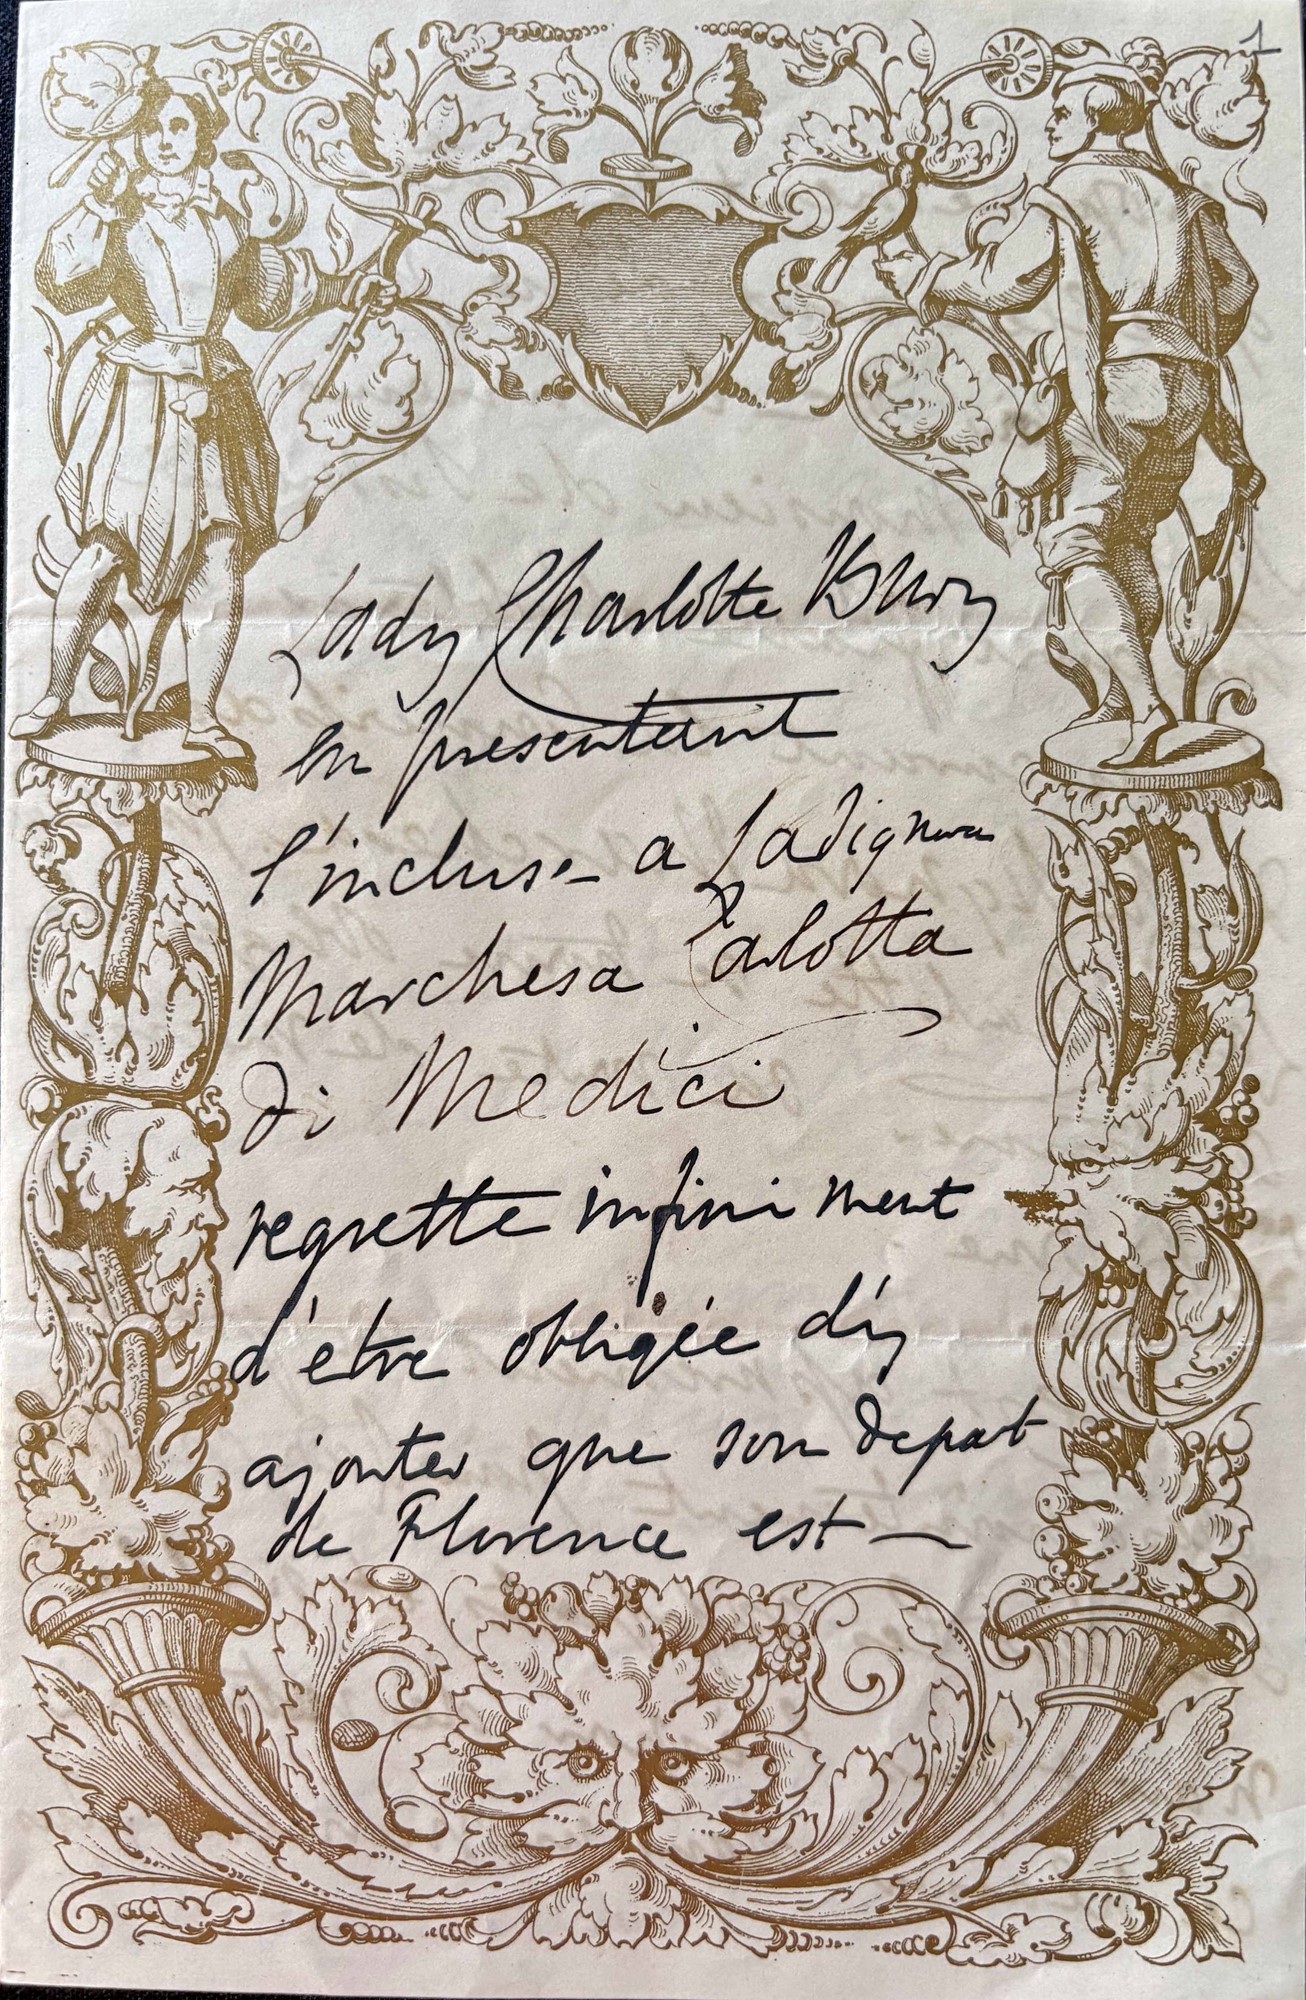 1
Lady Charlotte Bury
en presentant
l'incluse a Ladignora
Marchesa Calotta
di Medici
regrette infiniment
d'etre obligée d'y
ajouter que son depart
de Florence est —